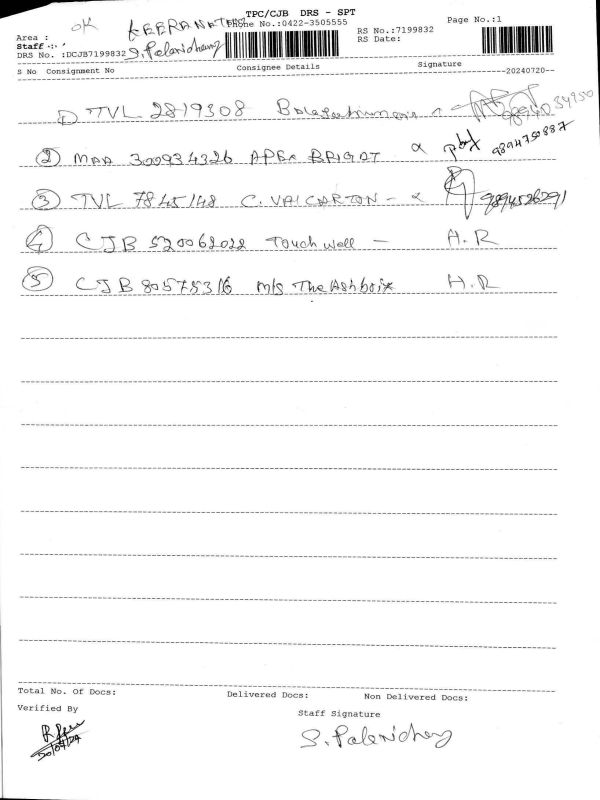 TPC/CJB DRS - SPT
OK KEERANATHAM Phone No.:0422-3505555 Page No.:1
Area : RS No.:7199832
Staff : S. Palanichamy RS Date:
DRS No. :DCJB7199832
S No Consignment No Consignee Details Signature
20240720
1 TVL 2819308 98940 34950
2 MAA 300934326 APEX BRIGHT 9894750887
3 TVL 7845148 C. VAI CARTON - 9894526291
4 CJB 520062022 Touch well - H.R
5 CJB 80575316 M/s The Ashboix H.R
Total No. Of Docs: Delivered Docs: Non Delivered Docs:
Verified By Staff Signature
S. Palanichamy